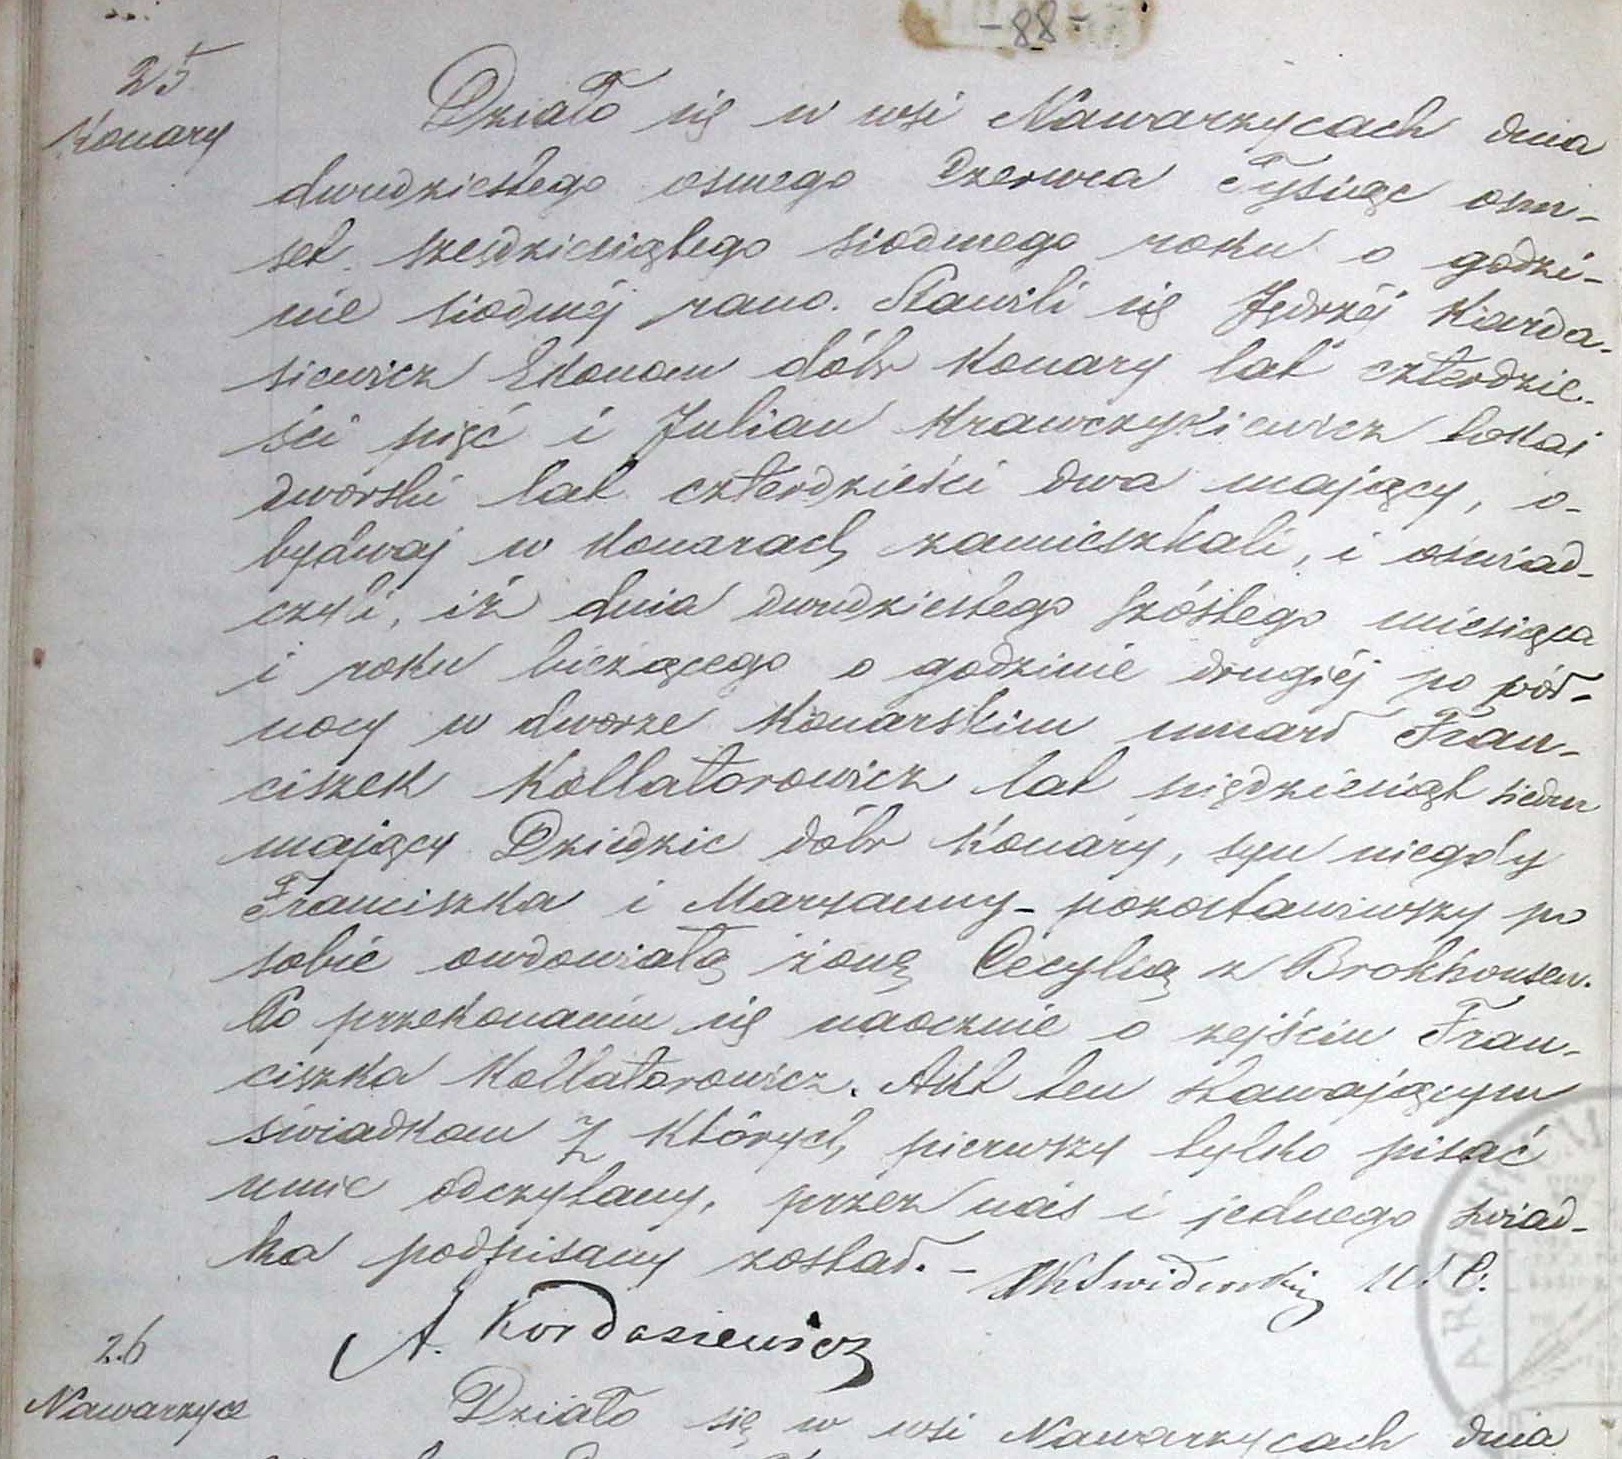 -88-
25
Konary
Działo się w wsi Nawarzycach dnia
dwudziestego osmego Czerwca Tysiąc osm-
set szesdziesiątego siodmego roku o godzi-
nie siodmej rano. Stawili się Jędrzej Karda-
siewicz Ekonom dóbr Konary lat czterdzie-
ści pięć i Julian Krawczykiewicz lokaj
dworski lat czterdzieści dwa mający, o-
bydwaj w Konarach zamieszkali, i oswiad-
czyli, iż dnia dwudziestego szóstego miesiąca
i roku bieżącego o godzinie drugiéj po pół-
nocy w dworze Konarskim umarł Fran-
ciszek Kollatorowicz lat piędziesiąt siedm
mający Dziedzic dóbr Konary, syn niegdy
Franciszka i Maryanny - pozostawiwszy po
sobie owdowiałą żonę Cecylią z Brokhousen.
Po przekonaniu się naocznie o zejściu Fran-
ciszka Kollatorowicz. Akt ten stawającym
świadkom z których pierwszy tylko pisać
umie odczytany, przez nas i jednego swiad-
ka podpisany został. - Świderski U. S. C.
A. Kordasiewicz
26
Nawarzyce
Działo się w wsi Nawarzycach dnia